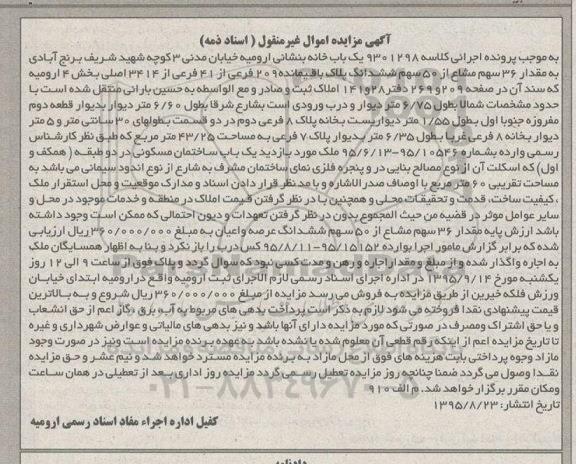 آگهی مزایده اموال غیرمنقول ( اسناد ذمه)
به موجب پرونده اجرائی کلاسه ۹۳۰۱۲۹۸ یک باب خانه بنشانی ارومیه خیابان مدنی ۳ کوچه شهید شریف برنج آبادی
به مقدار ۳۶ سهم مشاع از ۵۰ سهم ششدانگ پلاک باقیمانده ۲۰۹ فرعی از ۴۱ فرعی از ۳۴۱۴ اصلی بخش ۴ ارومیه
که سند آن در صفحه ۲۰۹ و ۲۶۹ دفتر ۲۸ و ۱۴۱ املاک ثبت و صادر و مع الواسطه به حسین بارانی منتقل شده است با
حدود مشخصات شمالا بطول ۶/۷۵ متر دیوار و درب ورودی است بشارع شرقا بطول ۶/۶۰ متر دیوار بدیوار قطعه دوم
مفروزه جنوبا اول بطول ۱/۵۵ متر دیواریست بخانه پلاک ۸ فرعی دوم در دو قسمت بطولهای ۳۰ سانتی متر و ۵ متر
دیوار بخانه ۸ فرعی غربا بطول ۶/۳۵ متر بدیوار پلاک ۷ فرعی به مساحت ۴۳/۲۵ متر مربع که طبق نظر کارشناس
رسمی وارده بشماره ۹۵/۱۰۵۴۶-۹۵/۶/۱۳ ملک مورد بازدید یک باب ساختمان مسکونی در دو طبقه ( همکف و
اول) که اسکلت آن از نوع مصالح بنایی و در و پنجره فلزی نمای ساختمان مشرف به شارع از نوع اندود سیمانی می باشد به
مساحت تقریبی ۶۰ متر مربع با اوصاف صدرالاشاره و با مد نظر قرار دادن اسناد و مدارک موقعیت و محل استقرار ملک
، کیفیت ساخت، قدمت و تحقیقات محلی و همچنین با در نظر گرفتن قیمت املاک در منطقه و خدمات موجود در محل و
سایر عوامل موثر در قضیه من حیث المجموع بدون در نظر گرفتن تعهدات و دیون احتمالی که ممکن است وجود داشته
باشد ارزش پایه مقدار ۳۶ سهم مشاع از ۵۰ سهم ششدانگ عرصه واعیان به مبلغ ۳۶۰/۰۰۰/۰۰۰ ریال ارزیابی
شده که برابر گزارش مامور اجرا بوارده ۹۵/۱۵۱۵۲-۹۵/۸/۱۱ کس درب را باز نکرد و بنا به اظهار همسایگان ملک
به اجاره واگذار شده و از مبلغ و مقدار اجاره و رهن و مدت کسی نبود که سوال گردد و پلاک فوق از ساعت ۹ الی ۱۲ روز
یکشنبه مورخ ۱۳۹۵/۹/۱۴ در اداره اجرای اسناد رسمی لازم الاجرای ثبت ارومیه واقع در ارومیه ابتدای خیابان
ورزش فلکه خیرین از طریق مزایده به فروش می رسد مزایده از مبلغ ۳۶۰/۰۰۰/۰۰۰ ریال شروع و به بالاترین
قیمت پیشنهادی نقدا فروخته می شود لازم به ذکر است پرداخت بدهی های مربوط به آب، برق، گاز اعم از حق انشعاب
و یا حق اشتراک ومصرف در صورتی که مورد مزایده دارای آنها باشد و نیز بدهی های مالیاتی و عوارض شهرداری و غیره
تا تاریخ مزایده اعم از اینکه رقم قطعی آن معلوم شده یا نشده باشد به عهده برنده مزایده است ونیز در صورت وجود
مازاد وجوه پرداختی بابت هزینه های فوق از محل مازاد به برنده مزایده مسترد خواهد شد و نیم عشر و حق مزایده
نقدا وصول می گردد ضمنا چنانچه روز مزایده تعطیل رسمی گردد مزایده روز اداری بعد از تعطیلی در همان ساعت
ومکان مقرر برگزار خواهد شد. م الف ۹۱۰
تاریخ انتشار: ۱۳۹۵/۸/۲۳
کفیل اداره اجراء مفاد اسناد رسمی ارومیه
۰۲۱-۸۸۳۴۹۶۷۰-۵